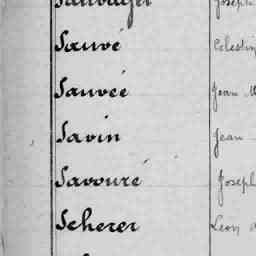 Sauvager Joseph
Sauvé Célestin
Sauvée Jean M
Savin Jean
Savouré Joseph
Scherer Leon